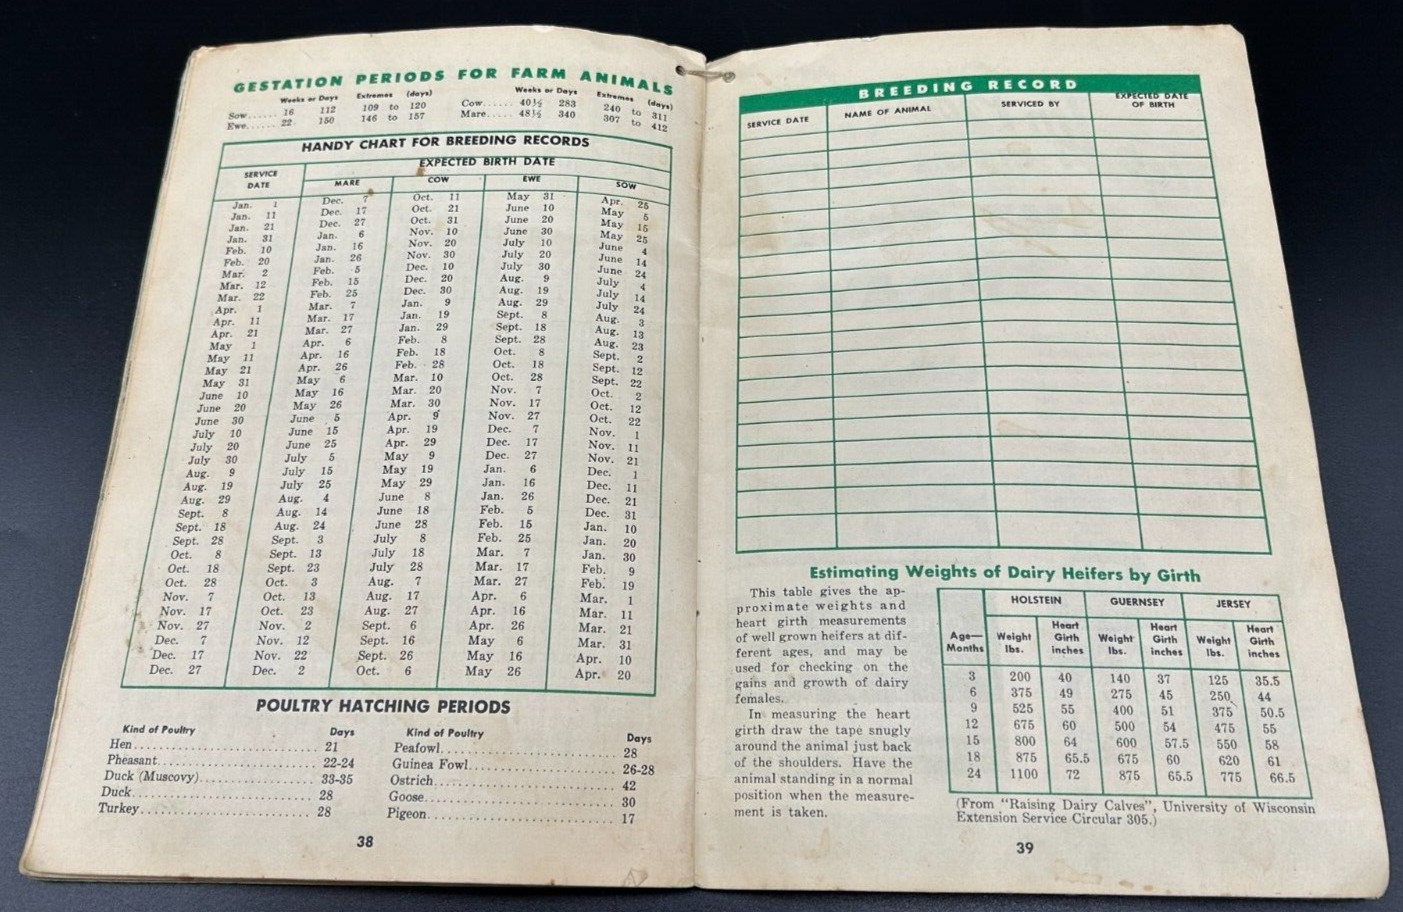 GESTATION PERIODS FOR FARM ANIMALS
Weeks or Days Extremes (days) Weeks or Days Extremes (days)
Sow...... 16 112 109 to 120 Cow...... 40½ 283 240 to 311
Ewe...... 22 150 146 to 157 Mare..... 48½ 340 307 to 412
HANDY CHART FOR BREEDING RECORDS
SERVICE DATE EXPECTED BIRTH DATE
MARE COW EWE SOW
Jan. 1 Dec. 7 Oct. 11 May 31 Apr. 25
Jan. 11 Dec. 17 Oct. 21 June 10 May 5
Jan. 21 Dec. 27 Oct. 31 June 20 May 15
Jan. 31 Jan. 6 Nov. 10 June 30 May 25
Feb. 10 Jan. 16 Nov. 20 July 10 June 4
Feb. 20 Jan. 26 Nov. 30 July 20 June 14
Mar. 2 Feb. 5 Dec. 10 July 30 June 24
Mar. 12 Feb. 15 Dec. 20 Aug. 9 July 4
Mar. 22 Feb. 25 Dec. 30 Aug. 19 July 14
Apr. 1 Mar. 7 Jan. 9 Aug. 29 July 24
Apr. 11 Mar. 17 Jan. 19 Sept. 8 Aug. 3
Apr. 21 Mar. 27 Jan. 29 Sept. 18 Aug. 13
May 1 Apr. 6 Feb. 8 Sept. 28 Aug. 23
May 11 Apr. 16 Feb. 18 Oct. 8 Sept. 2
May 21 Apr. 26 Feb. 28 Oct. 18 Sept. 12
May 31 May 6 Mar. 10 Oct. 28 Sept. 22
June 10 May 16 Mar. 20 Nov. 7 Oct. 2
June 20 May 26 Mar. 30 Nov. 17 Oct. 12
June 30 June 5 Apr. 9 Nov. 27 Oct. 22
July 10 June 15 Apr. 19 Dec. 7 Nov. 1
July 20 June 25 Apr. 29 Dec. 17 Nov. 11
July 30 July 5 May 9 Dec. 27 Nov. 21
Aug. 9 July 15 May 19 Jan. 6 Dec. 1
Aug. 19 July 25 May 29 Jan. 16 Dec. 11
Aug. 29 Aug. 4 June 8 Jan. 26 Dec. 21
Sept. 8 Aug. 14 June 18 Feb. 5 Dec. 31
Sept. 18 Aug. 24 June 28 Feb. 15 Jan. 10
Sept. 28 Sept. 3 July 8 Feb. 25 Jan. 20
Oct. 8 Sept. 13 July 18 Mar. 7 Jan. 30
Oct. 18 Sept. 23 July 28 Mar. 17 Feb. 9
Oct. 28 Oct. 3 Aug. 7 Mar. 27 Feb. 19
Nov. 7 Oct. 13 Aug. 17 Apr. 6 Mar. 1
Nov. 17 Oct. 23 Aug. 27 Apr. 16 Mar. 11
Nov. 27 Nov. 2 Sept. 6 Apr. 26 Mar. 21
Dec. 7 Nov. 12 Sept. 16 May 6 Mar. 31
Dec. 17 Nov. 22 Sept. 26 May 16 Apr. 10
Dec. 27 Dec. 2 Oct. 6 May 26 Apr. 20
POULTRY HATCHING PERIODS
Kind of Poultry Days Kind of Poultry Days
Hen 21 Peafowl 28
Pheasant 22-24 Guinea Fowl 26-28
Duck (Muscovy) 33-35 Ostrich 42
Duck 28 Goose 30
Turkey 28 Pigeon 17
38
BREEDING RECORD
SERVICE DATE NAME OF ANIMAL SERVICED BY EXPECTED DATE OF BIRTH
Estimating Weights of Dairy Heifers by Girth
This table gives the ap-
proximate weights and
heart girth measurements
of well grown heifers at dif-
ferent ages, and may be
used for checking on the
gains and growth of dairy
females.
In measuring the heart
girth draw the tape snugly
around the animal just back
of the shoulders. Have the
animal standing in a normal
position when the measure-
ment is taken.
HOLSTEIN GUERNSEY JERSEY
Age— Months Weight lbs. Heart Girth inches Weight lbs. Heart Girth inches Weight lbs. Heart Girth inches
3 200 40 140 37 125 35.5
6 375 49 275 45 250 44
9 525 55 400 51 375 50.5
12 675 60 500 54 475 55
15 800 64 600 57.5 550 58
18 875 65.5 675 60 620 61
24 1100 72 875 65.5 775 66.5
(From "Raising Dairy Calves", University of Wisconsin
Extension Service Circular 305.)
39